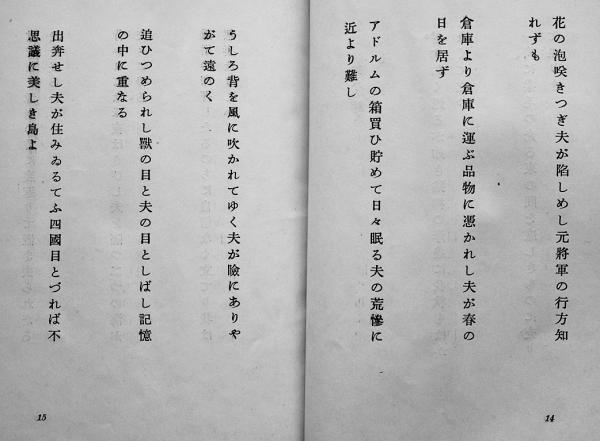 花の泡咲きつぎ夫が陷しめし元將軍の行方知
れずも
倉庫より倉庫に運ぶ品物に憑かれし夫が春の
日を居ず
アドルムの箱買ひ貯めて日々眠る夫の荒慘に
近より難し
14
うしろ背を風に吹かれてゆく夫が瞼にありや
がて遠のく
追ひつめられし獸の目と夫の目としばし記憶
の中に重なる
出奔せし夫が住みゐるてふ四國目とづれば不
思議に美しき島よ
15